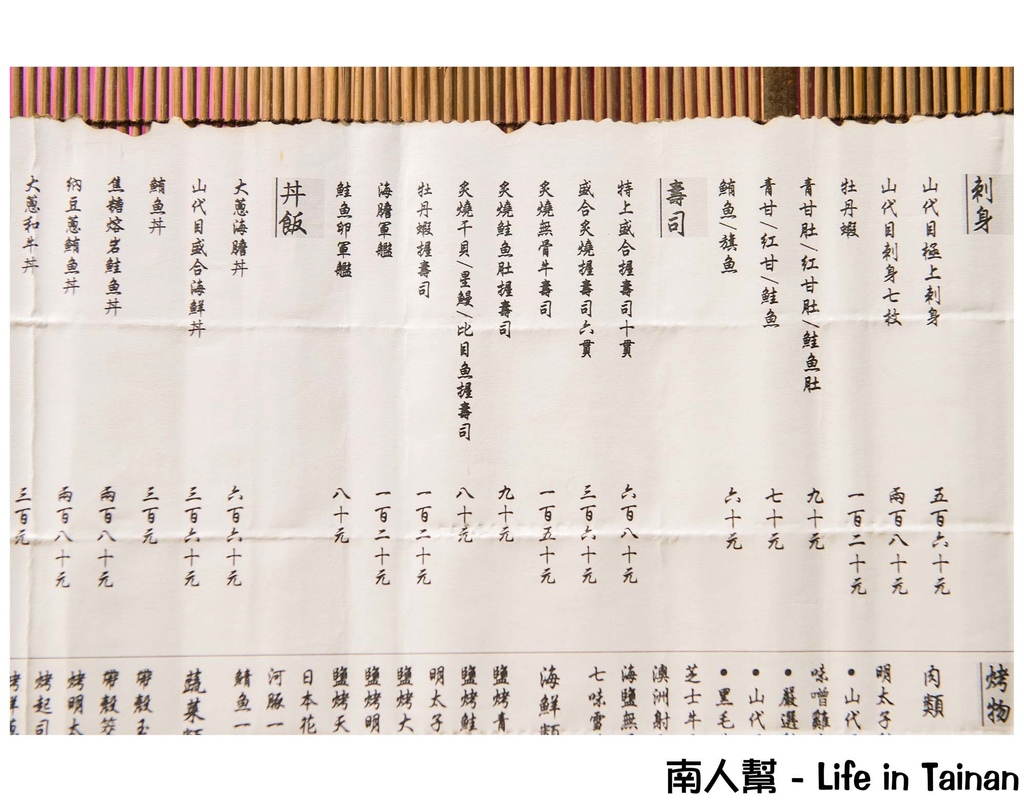 刺身
山代目極上刺身 五百六十元
山代目刺身七枚 兩百八十元
牡丹蝦 一百二十元
青甘肚/紅甘肚/鮭魚肚 九十元
青甘/紅甘/鮭魚 七十元
鮪魚/旗魚 六十元
壽司
特上盛合握壽司十貫 六百八十元
盛合炙燒握壽司六貫 三百六十元
炙燒無骨牛壽司 一百五十元
炙燒鮭魚肚握壽司 九十元
炙燒干貝/星鰻/比目魚握壽司 八十元
牡丹蝦握壽司 一百二十元
海膽軍艦 一百二十元
鮭魚卵軍艦 八十元
丼飯
大蔥海膽丼 六百六十元
山代目盛合海鮮丼 三百六十元
鮪魚丼 三百元
焦糖熔岩鮭魚丼 兩百八十元
納豆蔥鮪魚丼 兩百八十元
大蔥和牛丼 三百元
烤物
肉類
明太子
•山代
味噌雞
•嚴選
•山代
•黑毛
芝士牛
澳洲射
海鹽無
七味雪
海鮮類
鹽烤青
鹽烤鮭
明太子
鹽烤大
鹽烤明
鹽烤天
日本花
河豚一
鯖魚一
蔬菜類
帶殼玉
帶殼筊
烤明太
烤起司
南人幫 - Life in Tainan